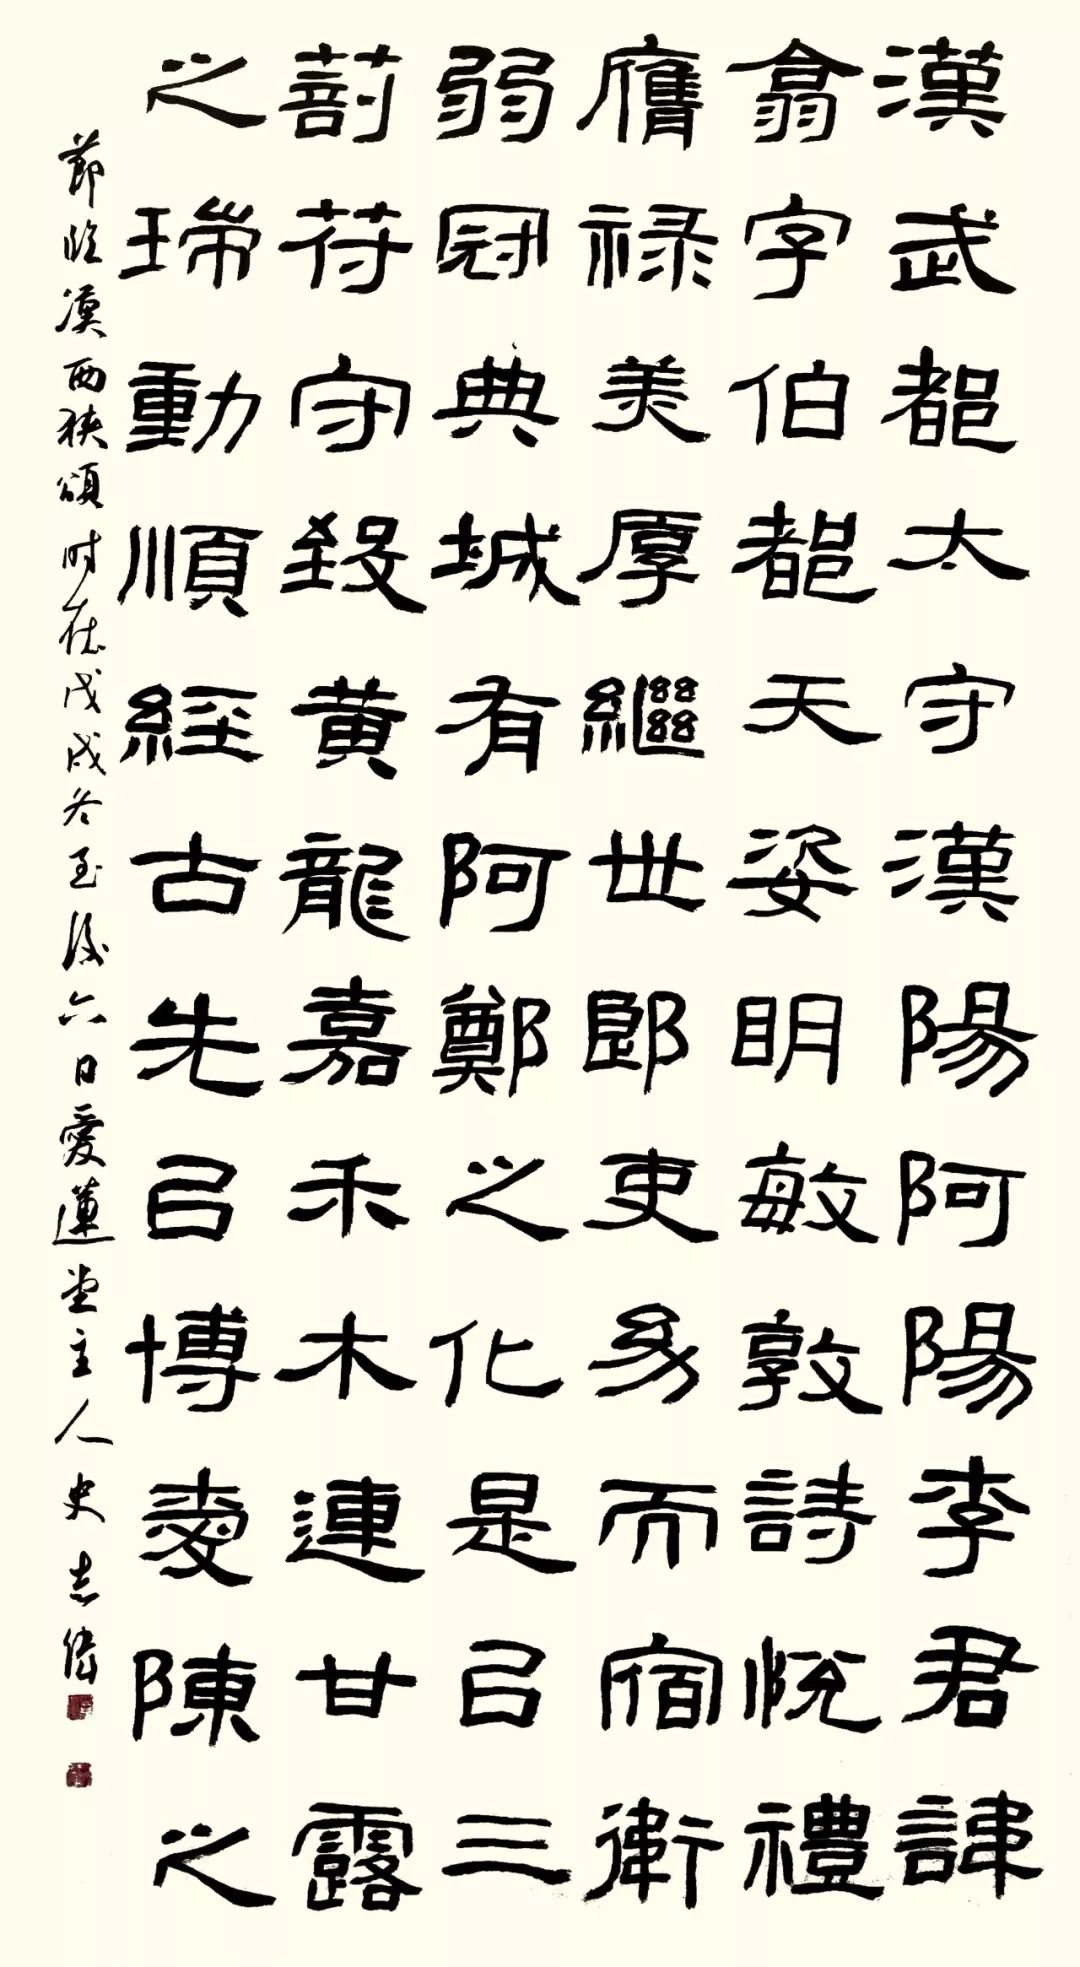 漢武都太守漢陽阿陽李君諱
翕字伯都天姿明敏敦詩悅禮
膺祿美厚繼世郎吏幼而宿衛
弱冠典城有阿鄭之化是㠯三
剖苻守致黃龍嘉禾木連甘露
之瑞動順經古先㠯博愛陳之
節臨漢西狹頌时在戊戌冬至後六日愛蓮堂主人史志偉